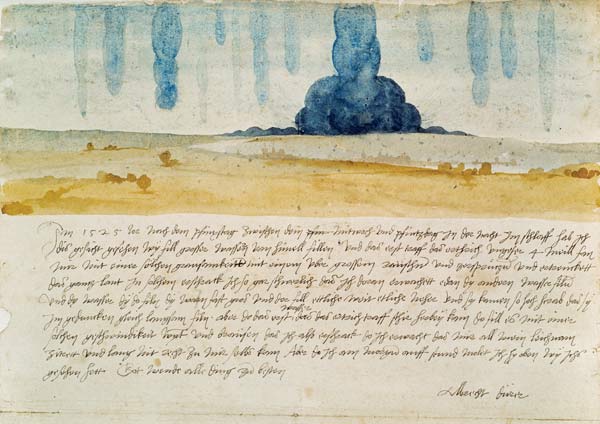 Im 1525 Jor nach dem pfinxstag zwischen dem Mitwoch und pfintzdag in der nacht im schlaff hab ich
dis gesicht gesehen wy fill grosser wassern vom himell fillen Und das erst traff das erthrich ungefer 4 meill fan
mir mit einer solchen grausamkeit mit einem uber grossem raüschn und zersprützn und ertrenckett
das gantz lant In solchem erschrack ich so gar schwerlich das ich doran erwachett e dan dy andern wasser filn
und dy wasser dy do filn dy warn fast gros und der fill ettliche weit ettliche neher und sy kamen so hoch herab das sy
im gedancken gleich langsam filn aber do das erst wasser das das ertrich traff schir herbey kam do fill es mit einer
solchen geschwindikeit wynt und braüsen das ich also erschrack do ich erwacht das mir all mein leichnam
zitrett und lang nit recht zu mir selbs kam Aber do ich am morgen auff stund molet ich hy oben wy ichs
gesehen hett Got wende alle ding zu besten
Albrecht dürer